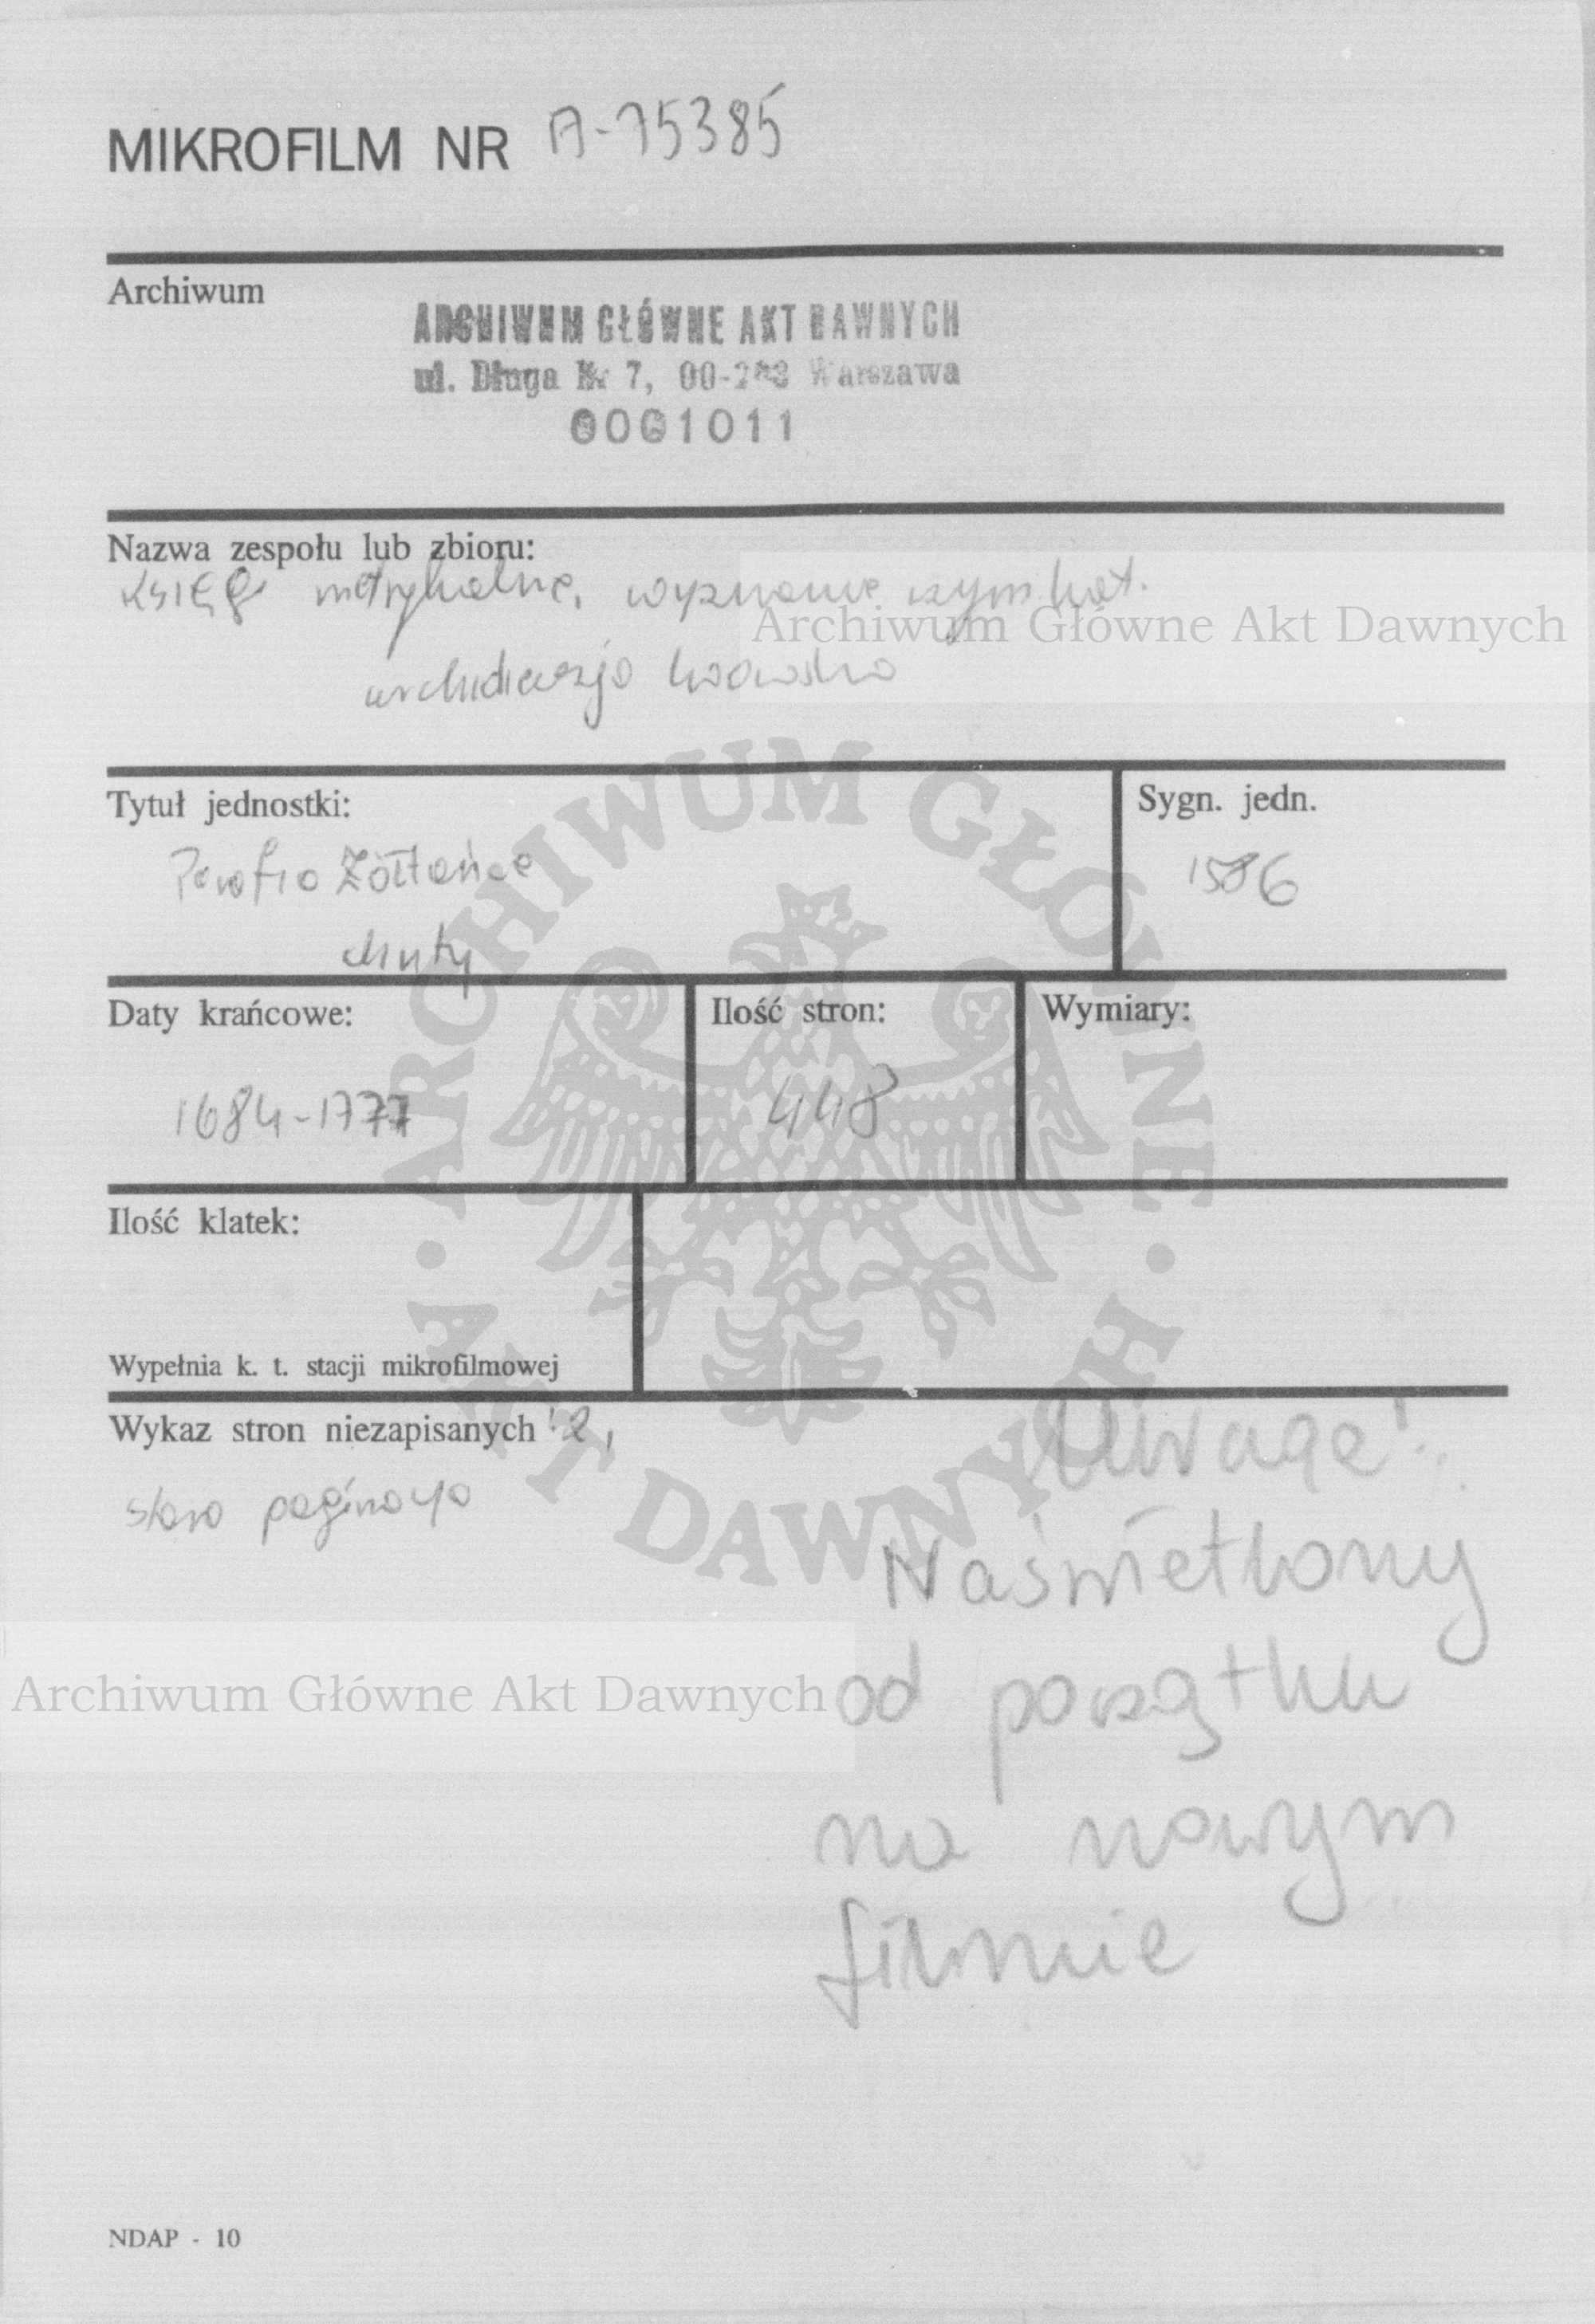 MIKROFILM NR A-75385
Archiwum
ARCHIWUM GŁÓWNE AKT DAWNYCH
ul. Długa Nr 7, 00-263 Warszawa
0001011
Nazwa zespołu lub zbioru:
księgi metrykalne, wyznanie rzym. kat.
Archiwum Główne Akt Dawnych
archidiecezja lwowska
Tytuł jednostki:
Sygn. jedn.
Parafia Żółtańce
1586
chrzty
Daty krańcowe:
Ilość stron:
Wymiary:
1684-1777
448
Ilość klatek:
Wypełnia k. t. stacji mikrofilmowej
Wykaz stron niezapisanych 2,
stara paginacja
Uwaga!
Naświetlony
od początku
na nowym
filmie
Archiwum Główne Akt Dawnych
ARCHIWUM GŁÓWNE
AKT DAWNYCH
NDAP - 10